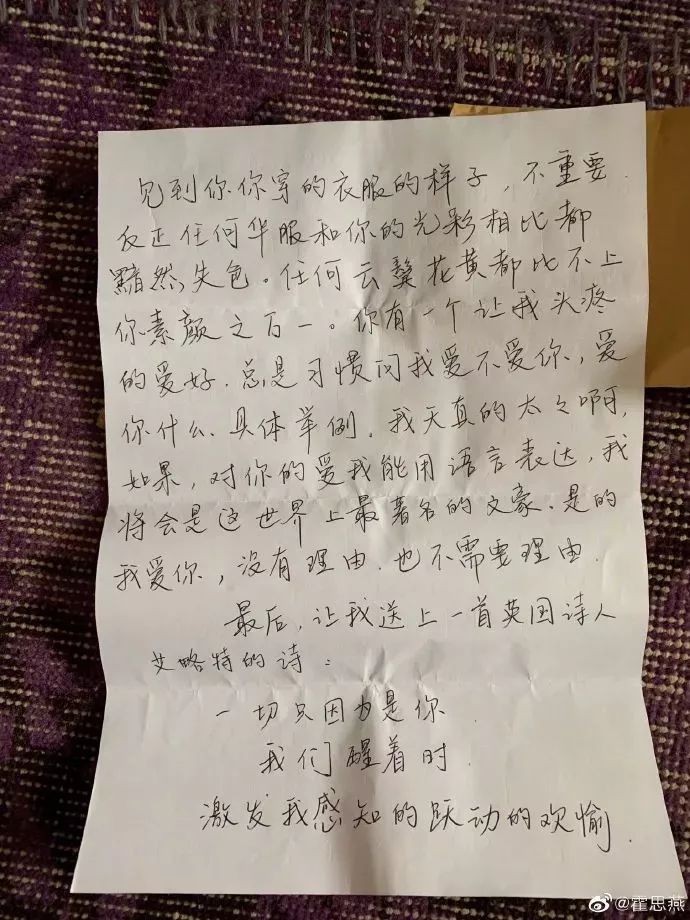 见到你你穿的衣服的样子，不重要.
反正任何华服和你的光彩相比都
黯然失色。任何云鬓花黄都比不上
你素颜之万一。你有一个让我头疼
的爱好.总是习惯问我爱不爱你，爱
你什么.具体举例.我天真的太太啊,
如果，对你的爱我能用语言表达，我
将会是这世界上最著名的文豪.是的
我爱你，没有理由.也不需要理由.
最后，让我送上一首英国诗人
艾略特的诗：
一切只因为是你.
我们醒着时.
激发我感知的跃动的欢愉.
@霍思燕